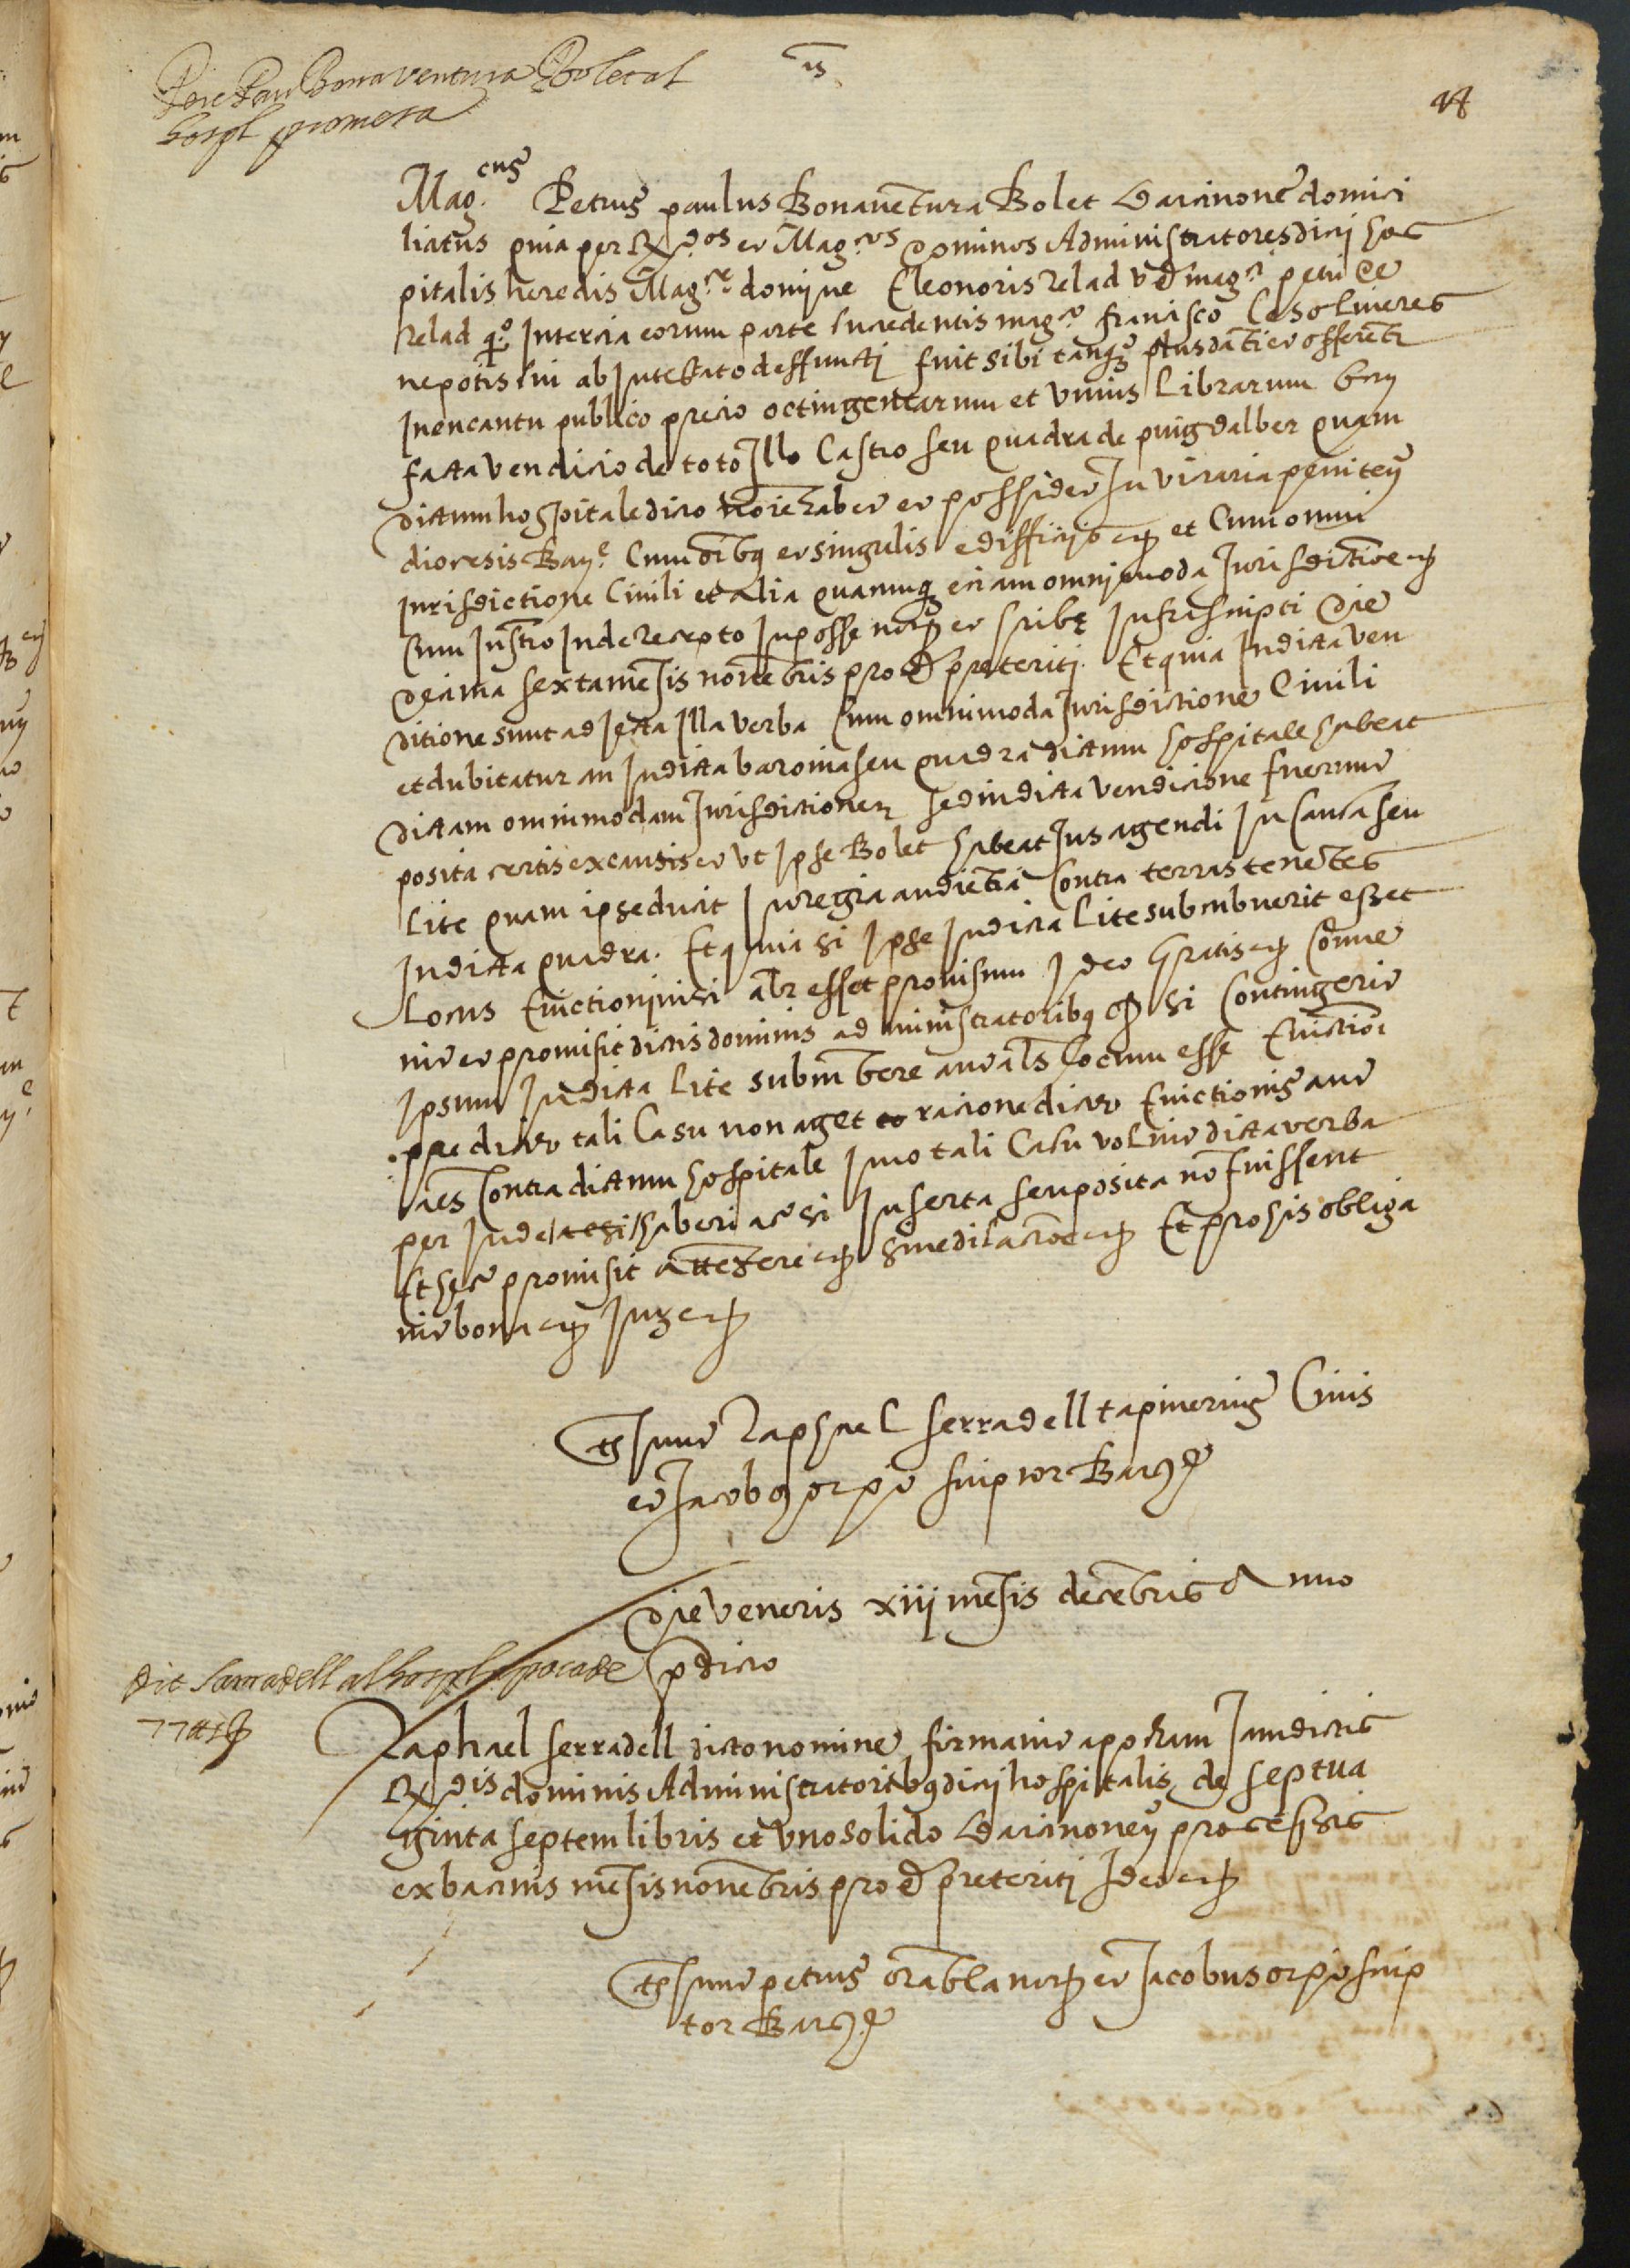 Pere Pau Bonaventura Bolet al
hospl promesa
Mag.cus Petrus paulus Bonaventura Bolet Barcinone domici
liatus quia per R.dos et Mag.cos dominos Administratores dicti hos
pitalis heredis Mag.ce domine Eleonoris relad mag.ci petri de
relad q.o In tercia eorum parte succedentis mag.co francisco Cesoliveres
nepotis sui ab Intestato deffuncti fuit sibi tanq plus danti et offerenti
In encantu publico precio octingentarum et unius Librarum
facta vendicio de toto Illo Castro seu quadra de puigdalber quam
dictum hospitale dicto noie habet et possidet In vicaria peniten
diocesis Bar.e Cum oibq et singulis edifficijs et Cum omni
Jurisdictione Civili et alia quacumq etiam omnimoda Jurisdictione
Cum Instro Inde recepto In posse not et scribe Infrascripti die
decima sexta mensis novebris prop preteriti. Et quia In dicta ven
ditione sunt adjecta Illa verba Cum omnimoda Jurisdictione Civili
et dubitatur an In dicta baronia seu quadra dictum hospitale habeat
dictam omnimodam Jurisdictionem sed in dicta vendicione fuerunt
posita certis ex causis et ut Ipse Bolet habeat Jus agendi In Causa seu
Lite quam ipse ducit In regia audietia Contra terras tenetes
In dicta quadra. Et quia si Ipse In dicta Lite subcubuerit esset
Locus Evictioni nisi alr esset provisum Ideo Gratis Conve
nit et promisit dictis dominis administratoribq si Contingerit
Ipsum In dicta Lite subcubere aut als Locum esse Evictioni
predicte tali Casu non aget racione dicte Evictionis aut
als Contra dictum hospitale Imo tali Casu voluit dicta verba
per Inde haberi ac si Inserta seu posita no fuissent
Et hec promisit attedere sine dilacioe Et pro his obliga
vit bona Jur
Ts sunt Raphael serradell tapinerius Civis
et Jacobq orpi scriptor Barq
Die veneris xiij mesis decebris Anno
pdicto
dit Sarradell al hospl apoca de
77
Raphael serradell dicto nomine firmavit apocham Jamdictis
R.dis dominis Administratoribq dicti hospitalis de septua
ginta septem libris et uno solido Barcinonen processis
ex bacinis mesis novebris prop preteriti Ideo
Ts sunt petrus not et Jacobus orpi scrip
tor Barq